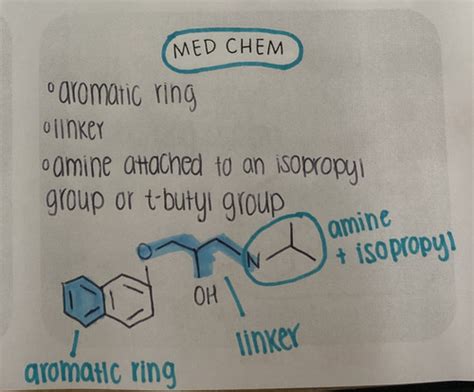 MED CHEM
aromatic ring
linker
amine attached to an isopropyl
group or t-butyl group
amine
+ isopropyl
O
N
OH
linker
aromatic ring